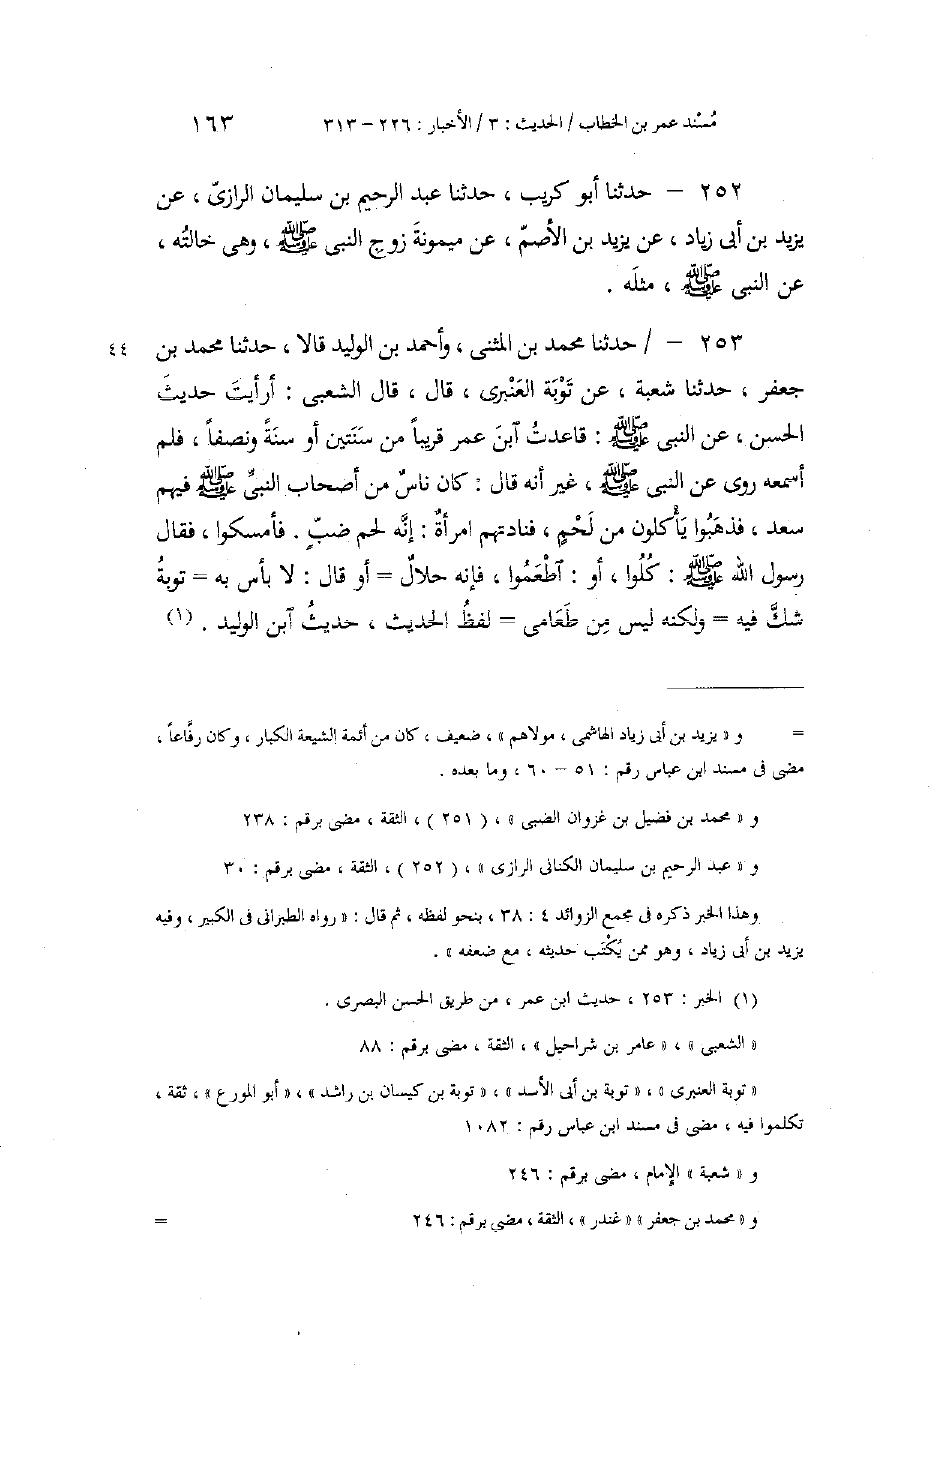 مُسْند عمر بن الخطاب / الحديث : ٣ / الأخبار : ٢٢٦ – ٣١٣ ١٦٣
٢٥٢ – حدثنا أبو كريب ، حدثنا عبد الرحيم بن سليمان الرازىّ ، عن
يزيد بن أبى زياد ، عن يزيد بن الأصمّ ، عن ميمونةَ زوجِ النبى ﷺ ، وهى خالتُه ،
عن النبى ﷺ ، مثلَه .
٢٥٣ – / حدثنا محمد بن المثنى ، وأحمد بن الوليد قالا ، حدثنا محمد بن ٤٤
جعفر ، حدثنا شعبة ، عن تَوْبَة العَنْبرى ، قال ، قال الشعبى : أرأيتَ حديثَ
الحسن ، عن النبى ﷺ : قاعدتُ آبنَ عمر قريباً من سَنَتين أو سنةً ونصفاً ، فلم
أسمعه روى عن النبى ﷺ ، غير أنه قال : كان ناسٌ من أصحاب النبىِّ ﷺ فيهم
سعد ، فذهَبُوا يَأْكلون من لَحْمٍ ، فنادتهم امرأةٌ : إنَّه لحم ضبّ . فأمسكوا ، فقال
رسول الله ﷺ : كُلُوا ، أو : آطْعَمُوا ، فإنه حلالٌ = أو قال : لا بأس به = توبةُ
شكَّ فيه = ولكنه ليس مِن طَعَامى = لفظُ الحديث ، حديثُ آبن الوليد . (١)
= و « يزيد بن أبى زياد الهاشمى ، مولاهم » ، ضعيف ، كان من أئمة الشيعة الكبار ، وكان رفَّاعاً ،
مضى فى مسند ابن عباس رقم : ٥١ – ٦٠ ، وما بعده .
و « محمد بن فضيل بن غزوان الضبى » ، ( ٢٥١ ) ، الثقة ، مضى برقم : ٢٣٨
و « عبد الرحيم بن سليمان الكنانى الرازى » ، ( ٢٥٢ ) ، الثقة ، مضى برقم : ٣٠
وهذا الخبر ذكره فى مجمع الزوائد ٤ : ٣٨ ، بنحو لفظه ، ثم قال : « رواه الطبرانى فى الكبير ، وفيه
يزيد بن أبى زياد ، وهو ممن يُكْتَب حديثه ، مع ضعفه » .
(١) الخبر : ٢٥٣ ، حديث ابن عمر ، من طريق الحسن البصرى .
« الشعبى » ، « عامر بن شراحيل » ، الثقة ، مضى برقم : ٨٨
« توبة العنبرى » ، « توبة بن أبى الأسد » ، « توبة بن كيسان بن راشد » ، « أبو المورع » ، ثقة ،
تكلموا فيه ، مضى فى مسند ابن عباس رقم : ١٠٨٢
و « شعبة » الإمام ، مضى برقم : ٢٤٦
و « محمد بن جعفر » « غندر » ، الثقة ، مضى برقم : ٢٤٦ =